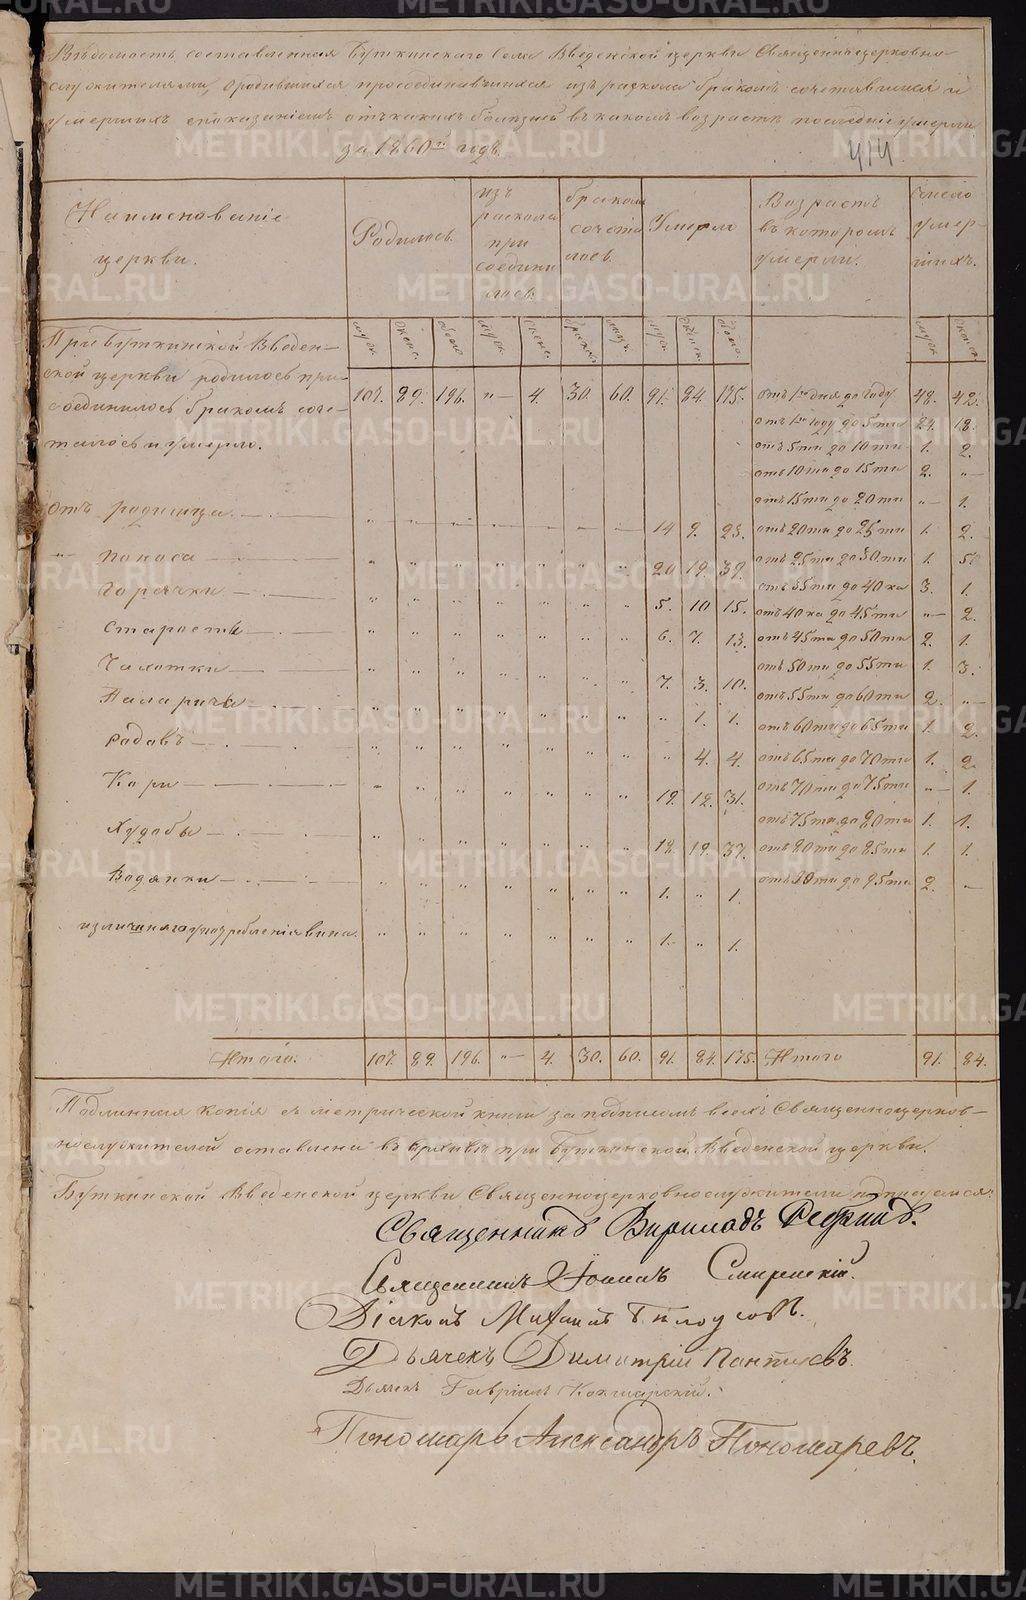 Вѣдомость составленная Буткинскаго Села Введенской церкви Священноцерковно
служителями, о родившихся присоединившихся изъ раскола бракомъ сочетавшихся и
умершихъ съ показаніемъ отъ какихъ болѣзней и въ какомъ возрастѣ последніе умерли
за 1860й годъ.
414
Наименованіе церкви.
Родилось.
изъ раскола присоединилось.
бракомъ сочеталось.
Умерло
Возрастъ въ которомъ умерли.
Число умерших.
муж. женс. обоего муж. женс. браков. муж. женск. обоего. муж. женск.
При Буткинской Введен-
ской церкви родилось при-
соединилось бракомъ соче-
талось и умерло.
107. 89. 196. " — 4. 30. 60. 91. 84. 175.
отъ 1го дня до году 48. 42.
отъ 1го году до 5ти 24. 18.
отъ 5ти до 10ти 1. 2.
отъ 10ти до 15ти 2. "
отъ 15ти до 20ти " 1.
Отъ родимца 14 9. 23.
отъ 20ти до 25ти 1. 2.
" Поноса 20 19. 39.
отъ 25ти до 30ти 1. 5.
Горячки 5. 10 15.
отъ 35ти до 40ка 3. 1.
отъ 40ка до 45ти " 2.
Старости 6. 7. 13.
отъ 45ти до 50ти 2. 1.
Чахотки 7. 3. 10.
отъ 50ти до 55ти 1. 3.
Параличя " 1. 1.
отъ 55ти до 60ти 2. "
отъ 60ти до 65ти 1. 2.
Родовъ " 4. 4.
отъ 65ти до 70ти 1. 2.
Кори 19. 12. 31.
отъ 70ти до 75ти " 1.
отъ 75ти до 80ти 1. 1.
Худобы 18. 19. 37.
отъ 80ти до 85ти 1. 1.
Водянки 1. " 1.
отъ 90ти до 95ти 2. —
излишняго употребленія вина. 1. " 1.
Итого. 107. 89. 196. " — 4. 30. 60. 91. 84. 175. Итого 91. 84.
Подлинная копія съ метрической книги за подписомъ всехъ Священноцерков-
нослужителей оставлена въ Архивѣ при Буткинской Введенской церкви.
Буткинской Введенской церкви Священноцерковнослужители подписуемся:
Священникъ
Священникъ Іоаннъ Смиренскій.
Діаконъ Михаилъ Бѣлоусовъ.
Дьячекъ Димитрій Пантуевъ.
Дьячекъ Гавріилъ Кокшарскій.
Пономарь Александръ Пономаревъ.
METRIKI.GASO-URAL.RU